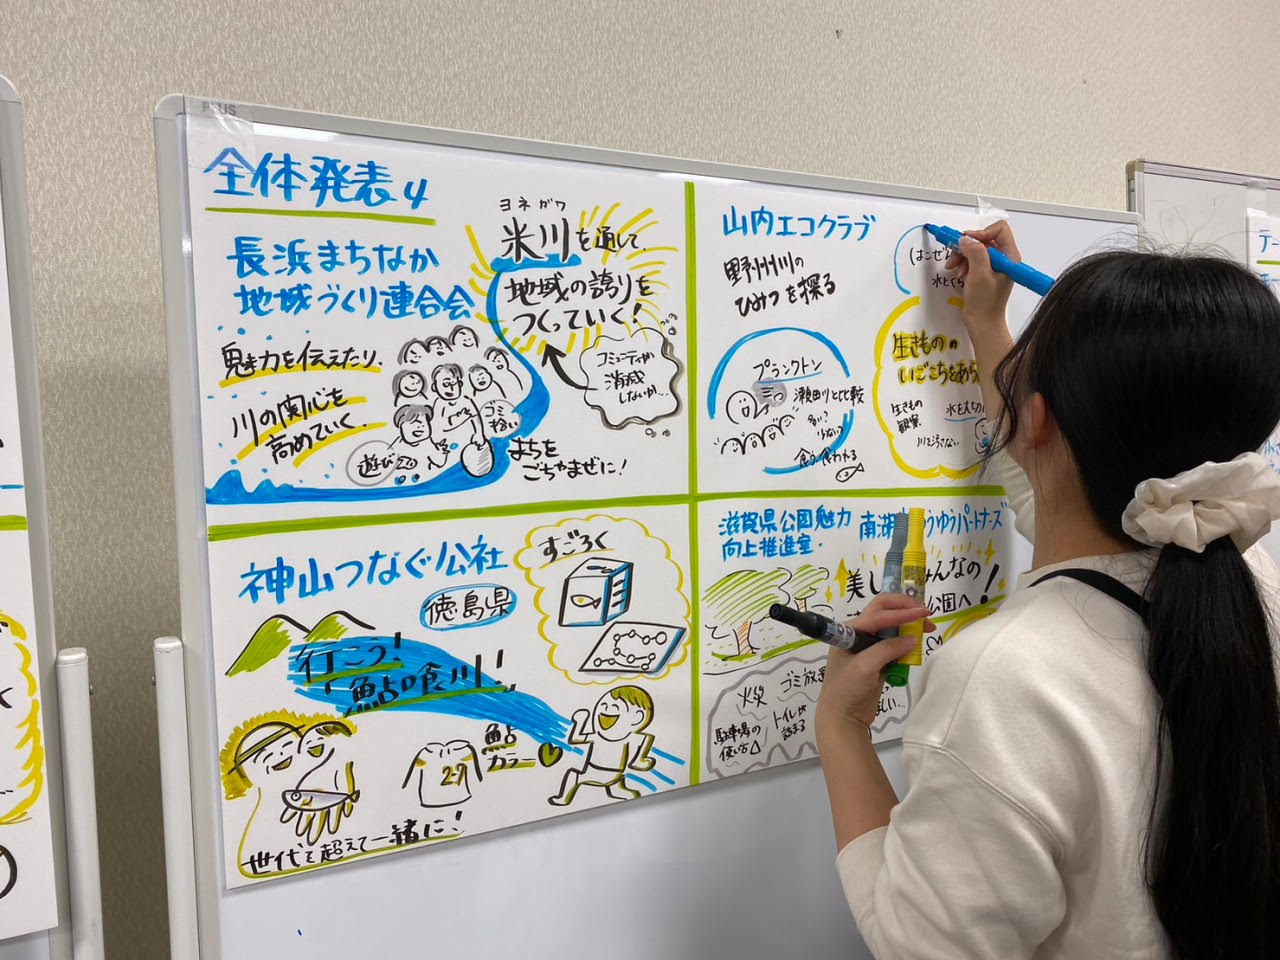 PLUS
全体発表4
長浜まちなか
地域づくり連合会
魅力を伝えたり、
川の関心を
高めていく。
遊び
ゴミ
拾い
ヨネガワ
米川を通して、
地域の誇りを
つくっていく!
コミュニティが
消滅
しないか…
まちを
ごちゃまぜに!
山内エコクラブ
野洲川の
ひみつを探る
プランクトン
瀬田川と比較
多い?
少ない?
食う食われる
生きものの
いごこちを
生きもの
観察
川を汚さない
神山つなぐ公社
徳島県
行こう!
鮎喰川!
すごろく
鮎
カラー
世代を超えて一緒に!
滋賀県公園魅力
向上推進室・
南湖
パートナーズ
美し
みんなの
公園へ!
火災
ゴミ放
トイレが
詰まる
駐車場の
使い方
テー